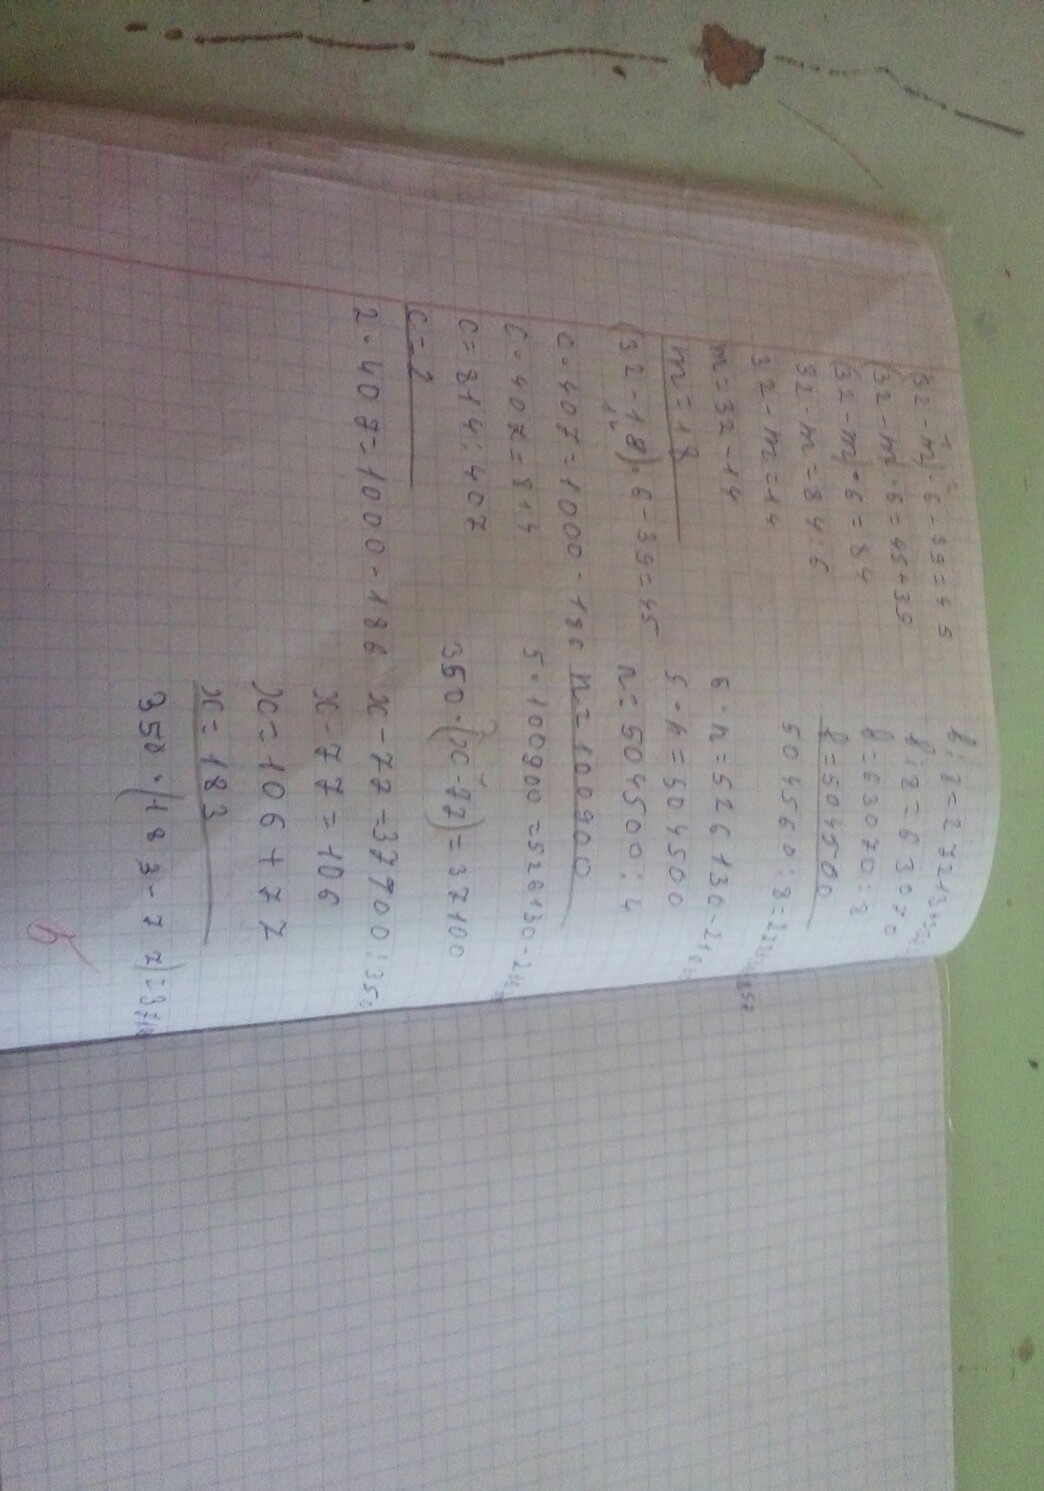 (32-m)·6-39=45
(32-m)·6=45+39
(32-m)·6=84
32-m=84:6
32-m=14
m=32-14
m=18
(32-18)·6-39=45
14
c·407=1000-186
c·407=814
c=814:407
c=2
2·407=1000-186
f:8=63070
f=63070:8
f=504560
504560:8=
5·n=526130-
5·n=504500
n=504500:4
n=100900
5·100900=526130-
350·(x-77)=37100
x-77=37700:350
x-77=106
x=106+77
x=183
350·(183-77)=